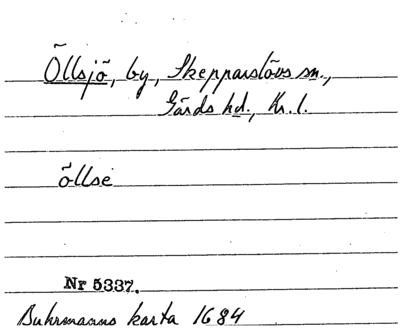 Öllsjö, by, Skepparslövs sn.,
Gärds hd., Kr. l.
öllse
Nr 5337.
Buhrmanns karta 1684